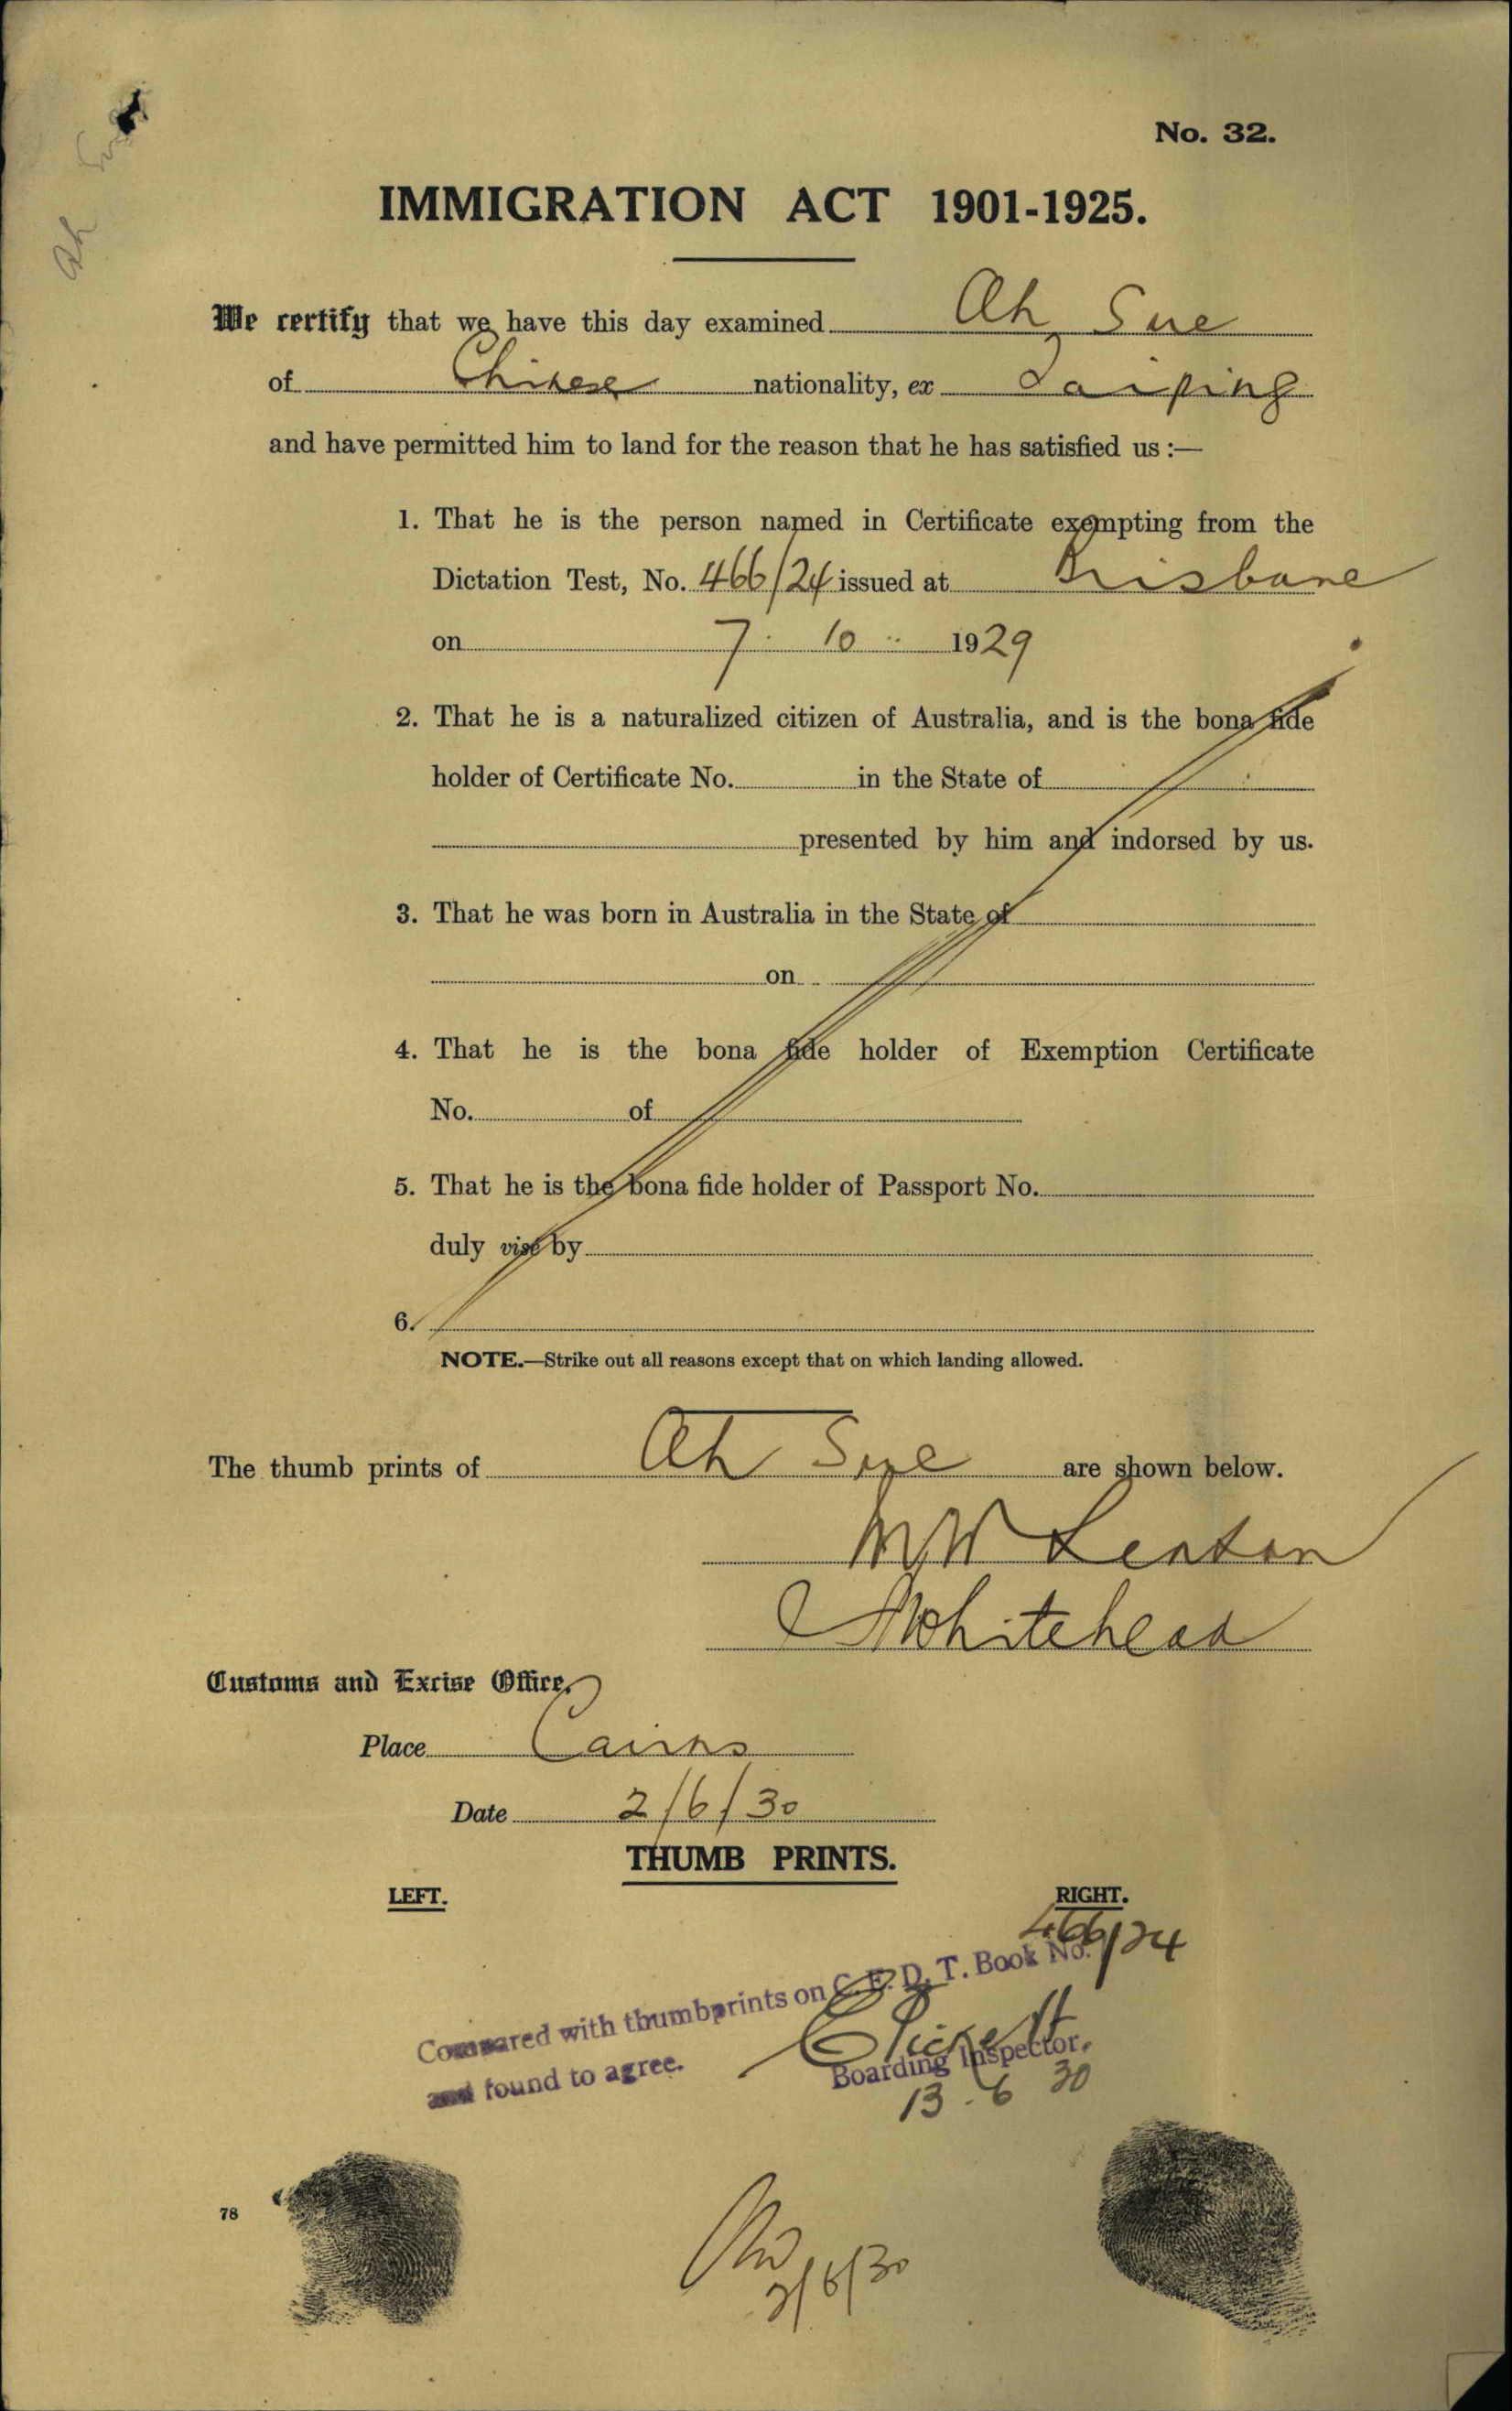 No. 32.
Ah Sue
IMMIGRATION ACT 1901-1925.
We certify that we have this day examined Ah Sue
of Chinese nationality, ex Taiping
and have permitted him to land for the reason that he has satisfied us :—
1. That he is the person named in Certificate exempting from the
Dictation Test, No. 466/24 issued at Brisbane
on 7. 10 .. 1929
2. That he is a naturalized citizen of Australia, and is the bona fide
holder of Certificate No. in the State of
presented by him and indorsed by us.
3. That he was born in Australia in the State of
on
4. That he is the bona fide holder of Exemption Certificate
No. of
5. That he is the bona fide holder of Passport No.
duly visé by
6.
NOTE.—Strike out all reasons except that on which landing allowed.
The thumb prints of Ah Sue are shown below.
Lenton
Whitehead
Customs and Excise Office,
Place Cairns
Date 2/6/30
THUMB PRINTS.
LEFT. RIGHT.
466/24
Compared with thumbprints on C. E. D. T. Book No.
and found to agree.
Boarding Inspector.
13 . 6 30
78
2/6/30